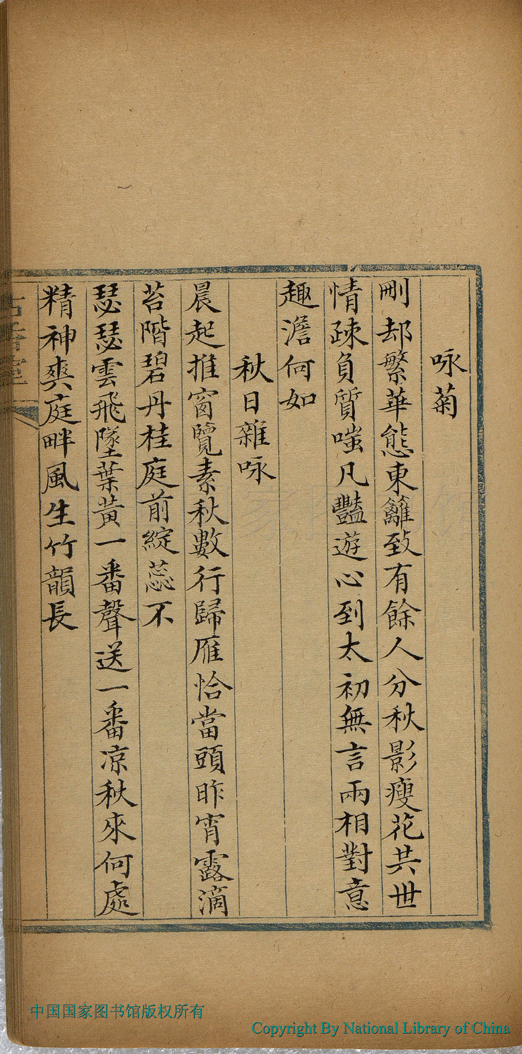 咏菊
刪却繁華態東籬致有餘人分秋影瘦花共世
情疎負質嗤凡豔遊心到太初無言兩相對意
趣澹何如
秋日雜咏
晨起推窗覽素秋數行歸雁恰當頭昨宵露滴
苔階碧丹桂庭前綻蕊不
瑟瑟雲飛墜葉黃一番聲送一番凉秋來何處
精神爽庭畔風生竹韻長
中国国家图书馆版权所有
Copyright By National Library of China